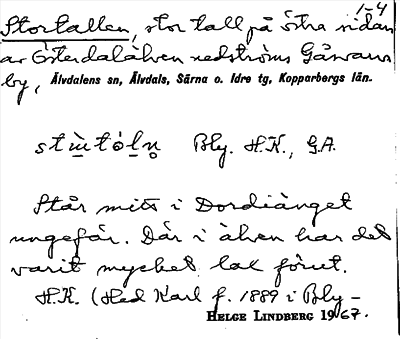 1-4
Stortallen, stor tall på östra sidan
av Österdalälven nedströms Gåsvarv
by, Älvdalens sn, Älvdals, Särna o. Idre tg, Kopparbergs län.
Bly. H.K., G.A.
Står mitt i Dordiänget
ungefär. Där i älven har det
varit mycket lax förut.
H.K. (Hed Karl f. 1889 i Bly-
HELGE LINDBERG 1967.